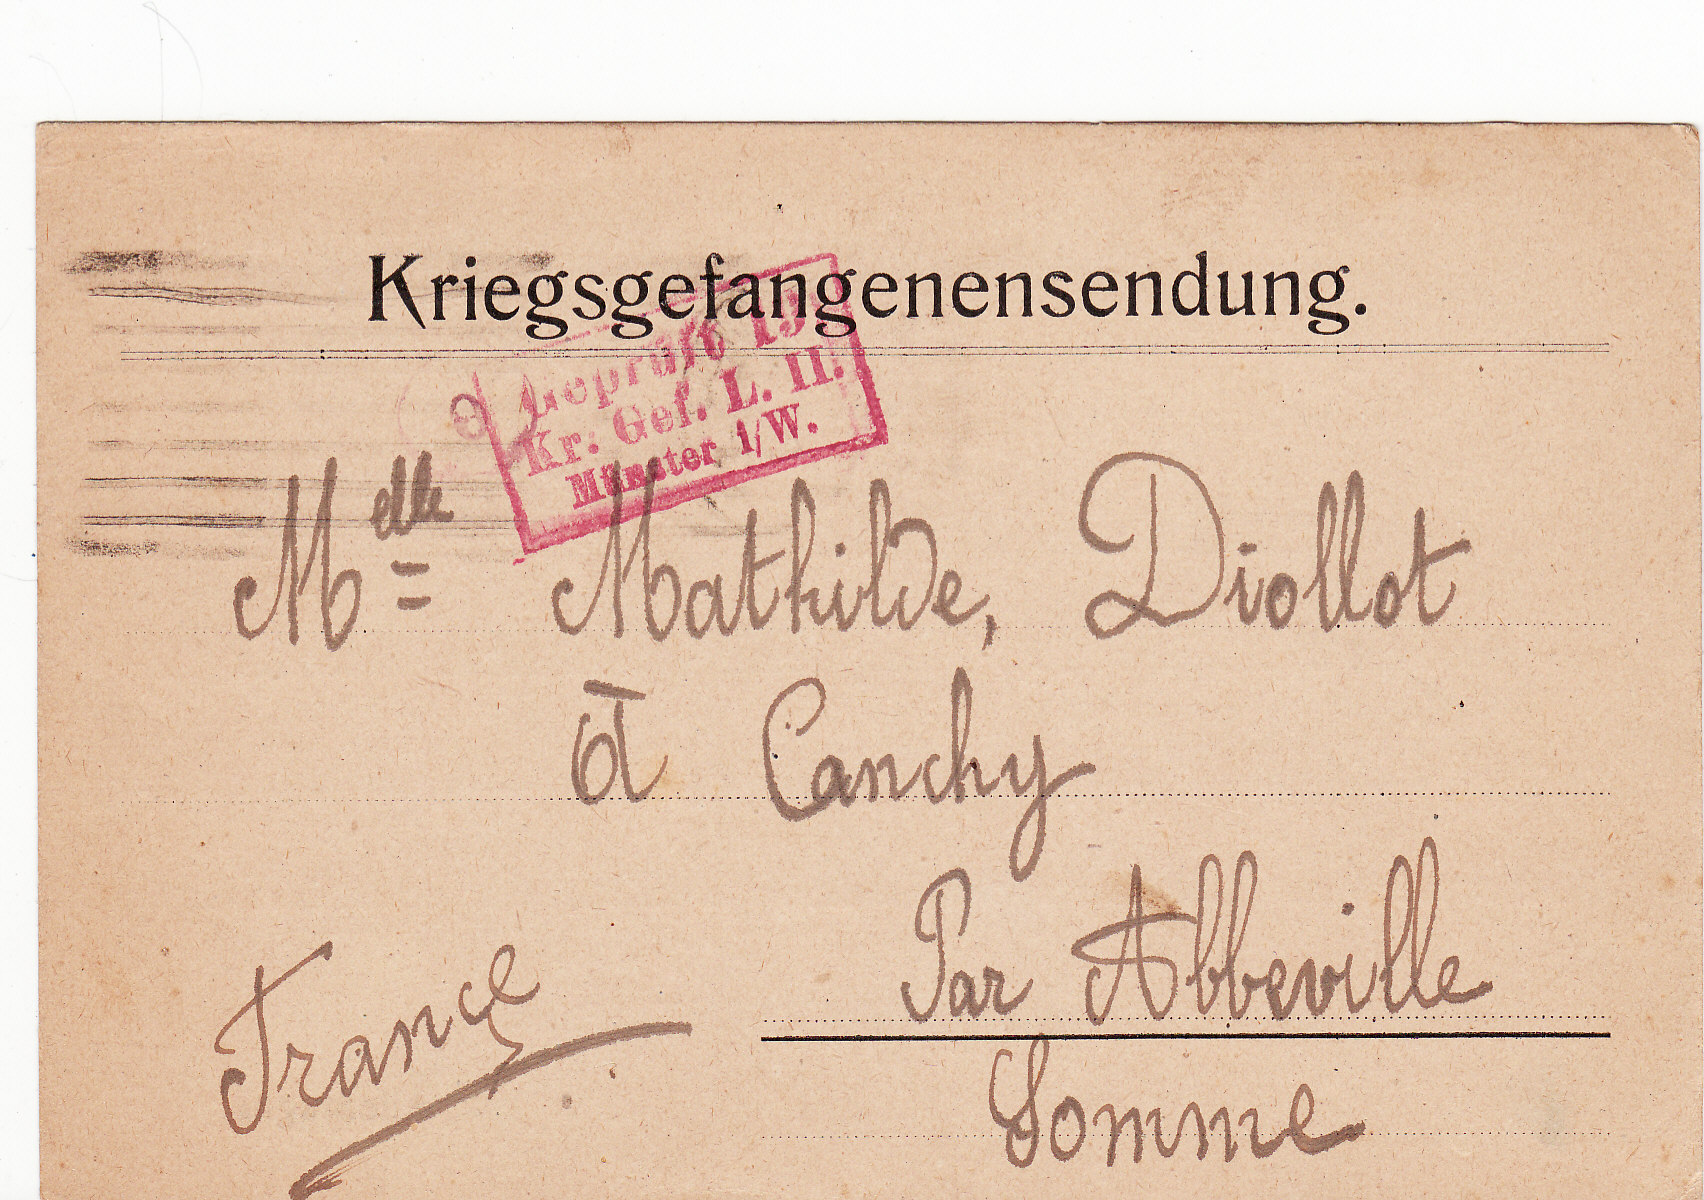 Kriegsgefangenensendung.
Geprüft 19.
Kr. Gef. L. II.
Münster i/W.
Melle Mathilde, Diollot
à Canchy
Par Abbeville
Somme
France